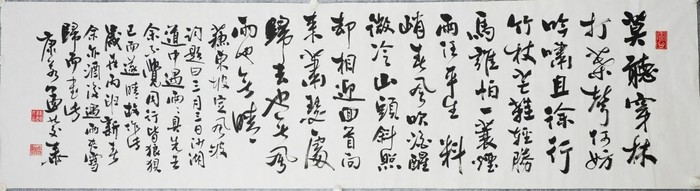 莫聽穿林
打葉聲何妨
吟嘯且徐行
竹杖芒鞋輕勝
馬誰怕一蓑煙
雨任平生料
峭春風吹酒醒
微冷山頭斜照
却相迎回首向
來蕭瑟處
歸去也無風
雨也無晴
蘇東坡定風波
詞題曰三月三日沙湖
道中遇雨具先去
余不覺同行皆狼狽
已而遂晴故作此
歲在丙新春
余亦酒後遇雨
歸而書此